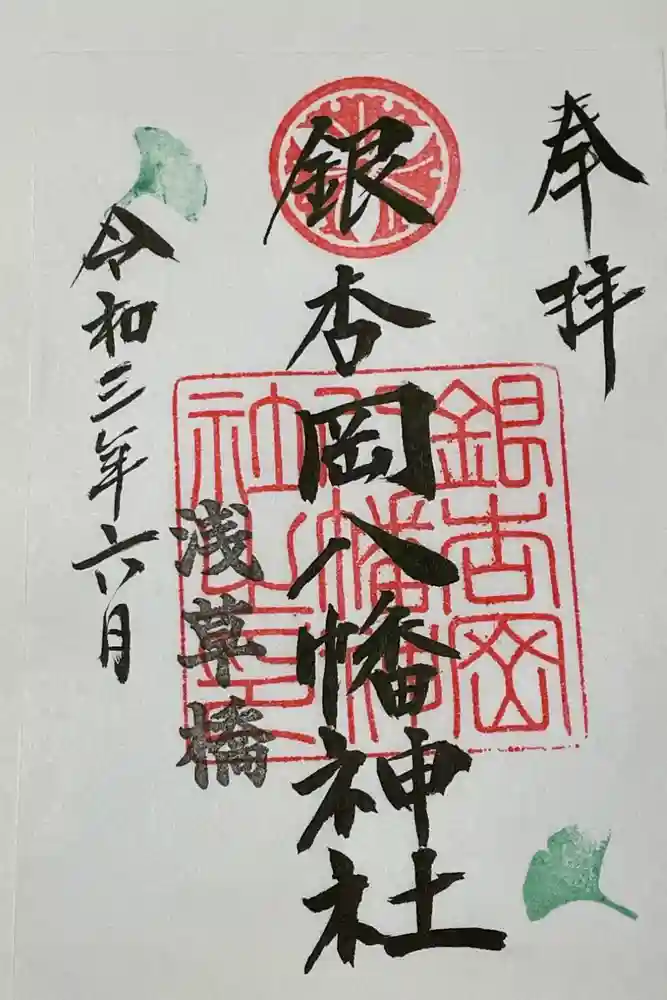 奉拝
銀杏岡八幡神社
銀杏岡
八幡神
社之璽
浅草橋
令和三年六月